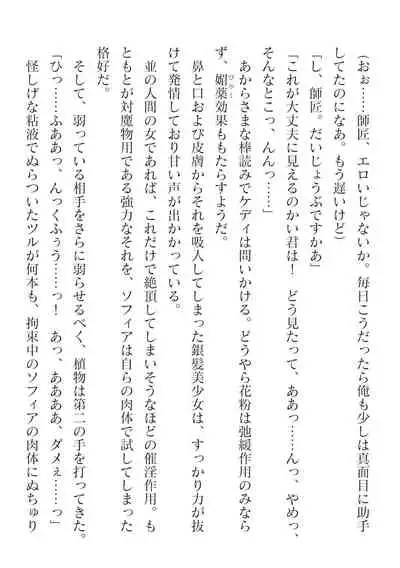 (おぉ……師匠、エロいじゃないか。毎日こうだったら俺も少しは真面目に助手
してたのになあ。もう遅いけど)
「し、師匠。だいじょうぶですかあ」
「これが大丈夫に見えるのかい君は！　どう見たって、ああっ……んっ、やめっ、
そんなとこっ、んんっ……」
　あからさまな棒読みでケディは問いかける。どうやら花粉は弛緩作用のみなら
ず、媚薬効果ももたらすようだ。
　鼻と口および皮膚からそれを吸入してしまった銀髪美少女は、すっかり力が抜
けて発情しており甘い声が出かかっている。
　並の人間の女であれば、これだけで絶頂してしまいそうなほどの催淫作用。も
ともとが対魔物用である強力なそれを、ソフィアは自らの肉体で試してしまった
格好だ。
　そして、弱っている相手をさらに弱らせるべく、植物は第二の手を打ってきた。
「ひっ……ふああっ、んっくふぅう……っ！　あっ、ああああ、ダメぇ……っ」
　怪しげな粘液でぬらついたツルが何本も、拘束中のソフィアの肉体にぬちゅり